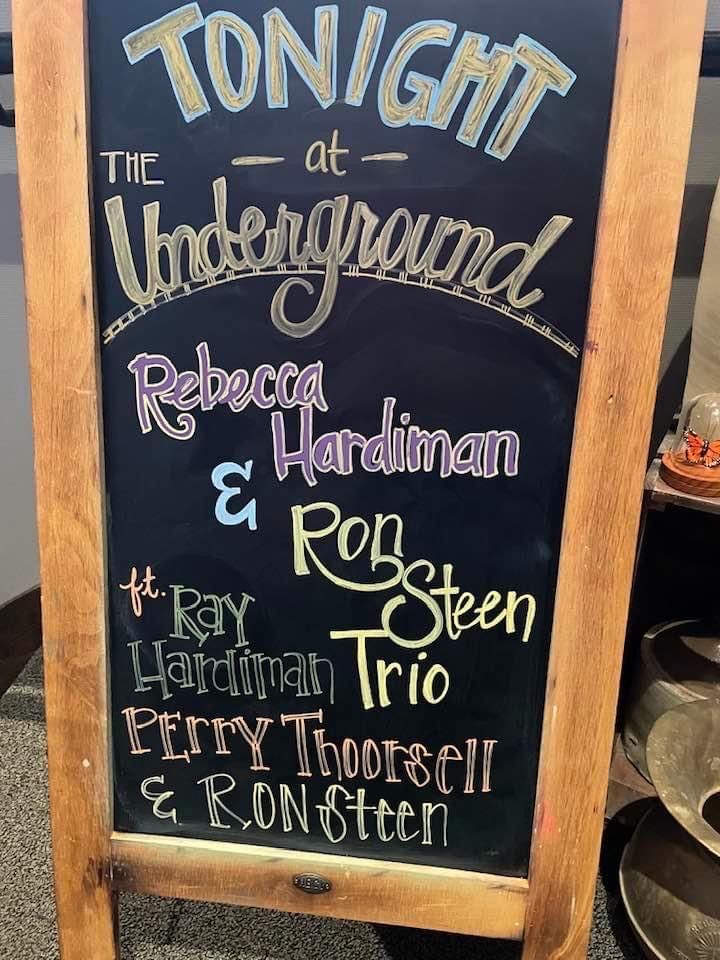 TONIGHT
at
THE
Underground
Rebecca
Hardiman
&
Ron
Steen
Trio
ft.
Ray
Hardiman
PErrY Thoorsell
& RON Steen